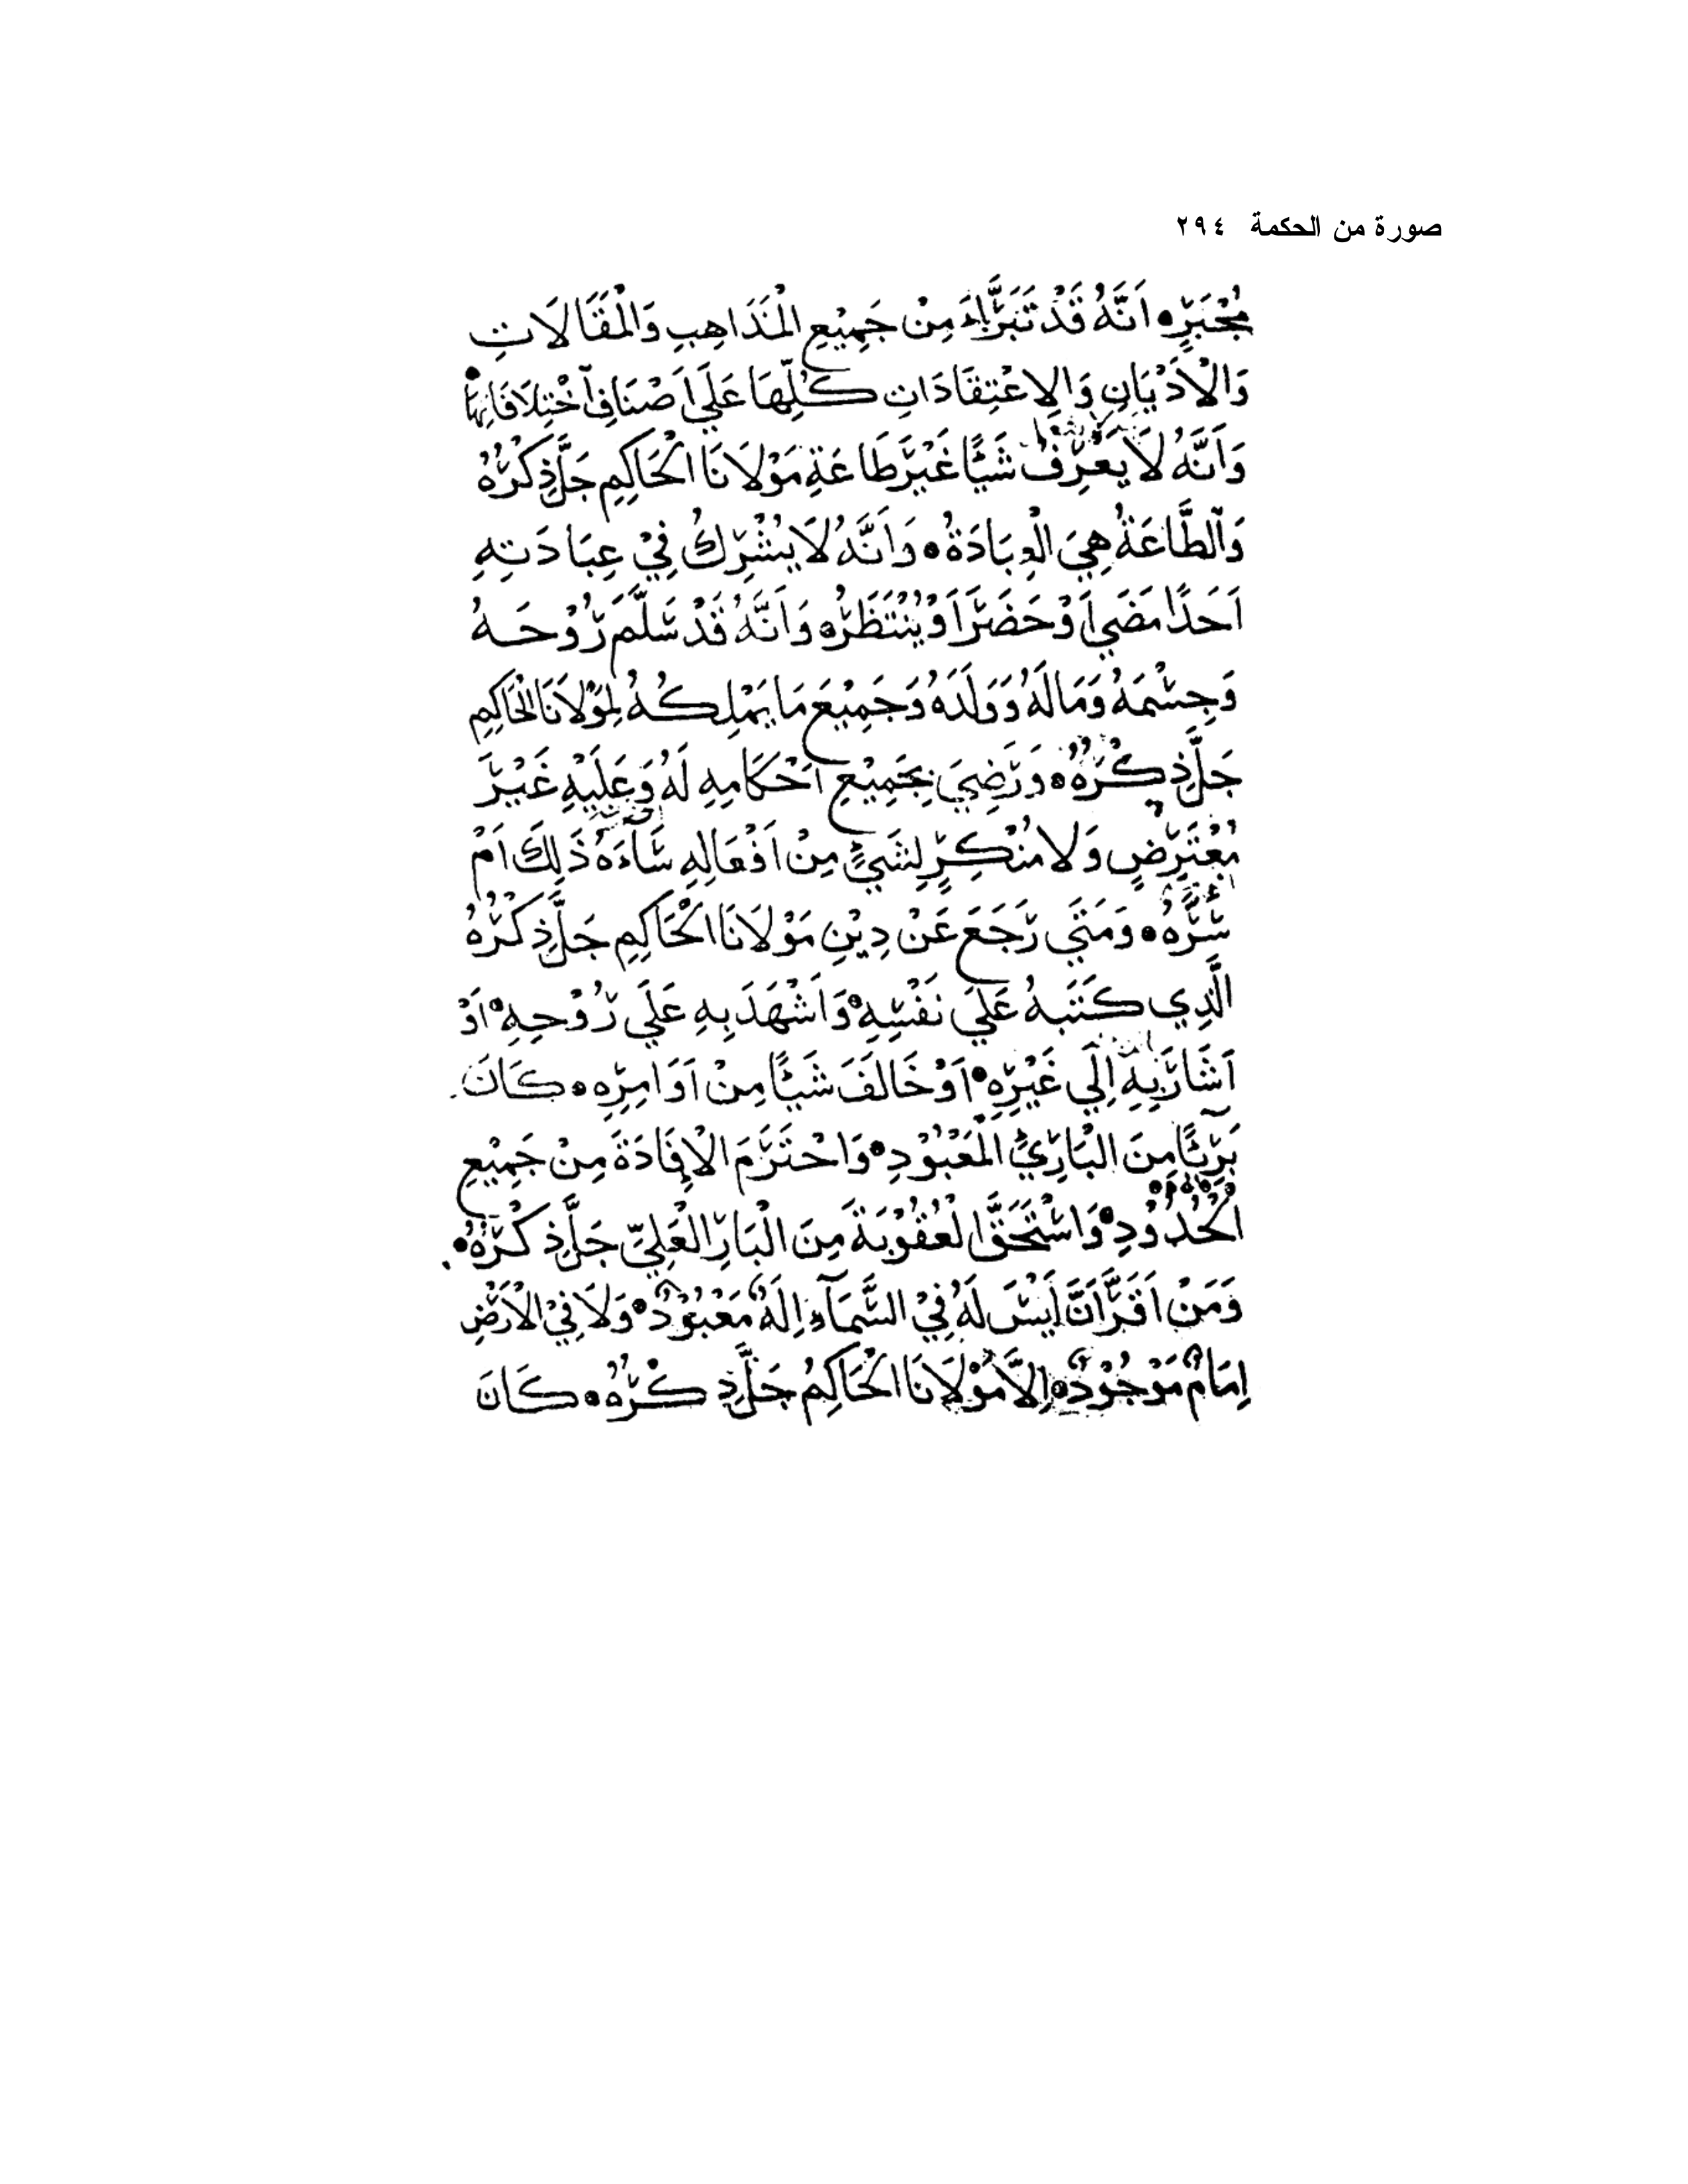 صورة من الحكمة ٢٩٤
مُجْبَرٍ • اَنَّهُ قَدْ تَبَرَّاءَ مِنْ جَمِيْعِ الْمَذَاهِبِ وَالْمَقَالَاتِ
وَالْاَدْيَانِ وَالِاعْتِقَادَاتِ كُلِّهَا عَلَي اَصْنَافِ اَخْتِلَافَاتِهَا •
وَاَنَّهُ لَا يَعْرِفُ شَيْئًا غَيْرَ طَاعَةِ مَوْلَانَا الْحَاكِمِ جَلَّ ذِكْرُهُ
وَالطَّاعَةُ هِيَ الْعِبَادَةُ • وَاَنَّهُ لَا يُشْرِكُ فِيْ عِبَادَتِهِ
اَحَدًا مَضَي اَوْ حَضَرَ اَوْ يُنْتَظَرُ • وَاَنَّهُ قَدْ سَلَّمَ رُوْحَهُ
وَجِسْمَهُ وَمَالَهُ وَوَلَدَهُ وَجَمِيْعَ مَا يَمْلِكُهُ لِمَوْلَانَا الْحَاكِمِ
جَلَّ ذِكْرُهُ • وَرَضِيَ بِجَمِيْعِ اَحْكَامِهِ لَهُ وَعَلَيْهِ غَيْرَ
مُعْتَرِضٍ وَلَا مُنْكِرٍ لِشَيْءٍ مِنْ اَفْعَالِهِ سَاءَهُ ذَلِكَ اَمْ
سَرَّهُ • وَمَتَي رَجَعَ عَنْ دِيْنِ مَوْلَانَا الْحَاكِمِ جَلَّ ذِكْرُهُ
الَّذِي كَتَبَهُ عَلَي نَفْسِهِ • وَاَشْهَدَ بِهِ عَلَي رُوْحِهِ • اَوْ
اَشَارَ بِهِ اِلَي غَيْرِهِ • اَوْ خَالَفَ شَيْئًا مِنْ اَوَامِرِهِ • كَانَ
بَرِيْئًا مِنَ الْبَارِيءِ الْمَعْبُوْدِ • وَاحْتَرَمَ الْاِفَادَةَ مِنْ جَمِيْعِ
الْحُدُوْدِ • وَاسْتَحَقَّ الْعُقُوْبَةَ مِنَ الْبَارِ الْعَلِيِّ جَلَّ ذِكْرُهُ •
وَمَنْ اَقَرَّ اَنَّ لَيْسَ لَهُ فِيْ السَّمَآءِ اِلَهٌ مَعْبُوْدٌ • وَلَا فِيْ الْاَرْضِ
اِمَامٌ مَوْجُوْدٌ • اِلَّا مَوْلَانَا الْحَاكِمُ جَلَّ ذِكْرُهُ • كَانَ